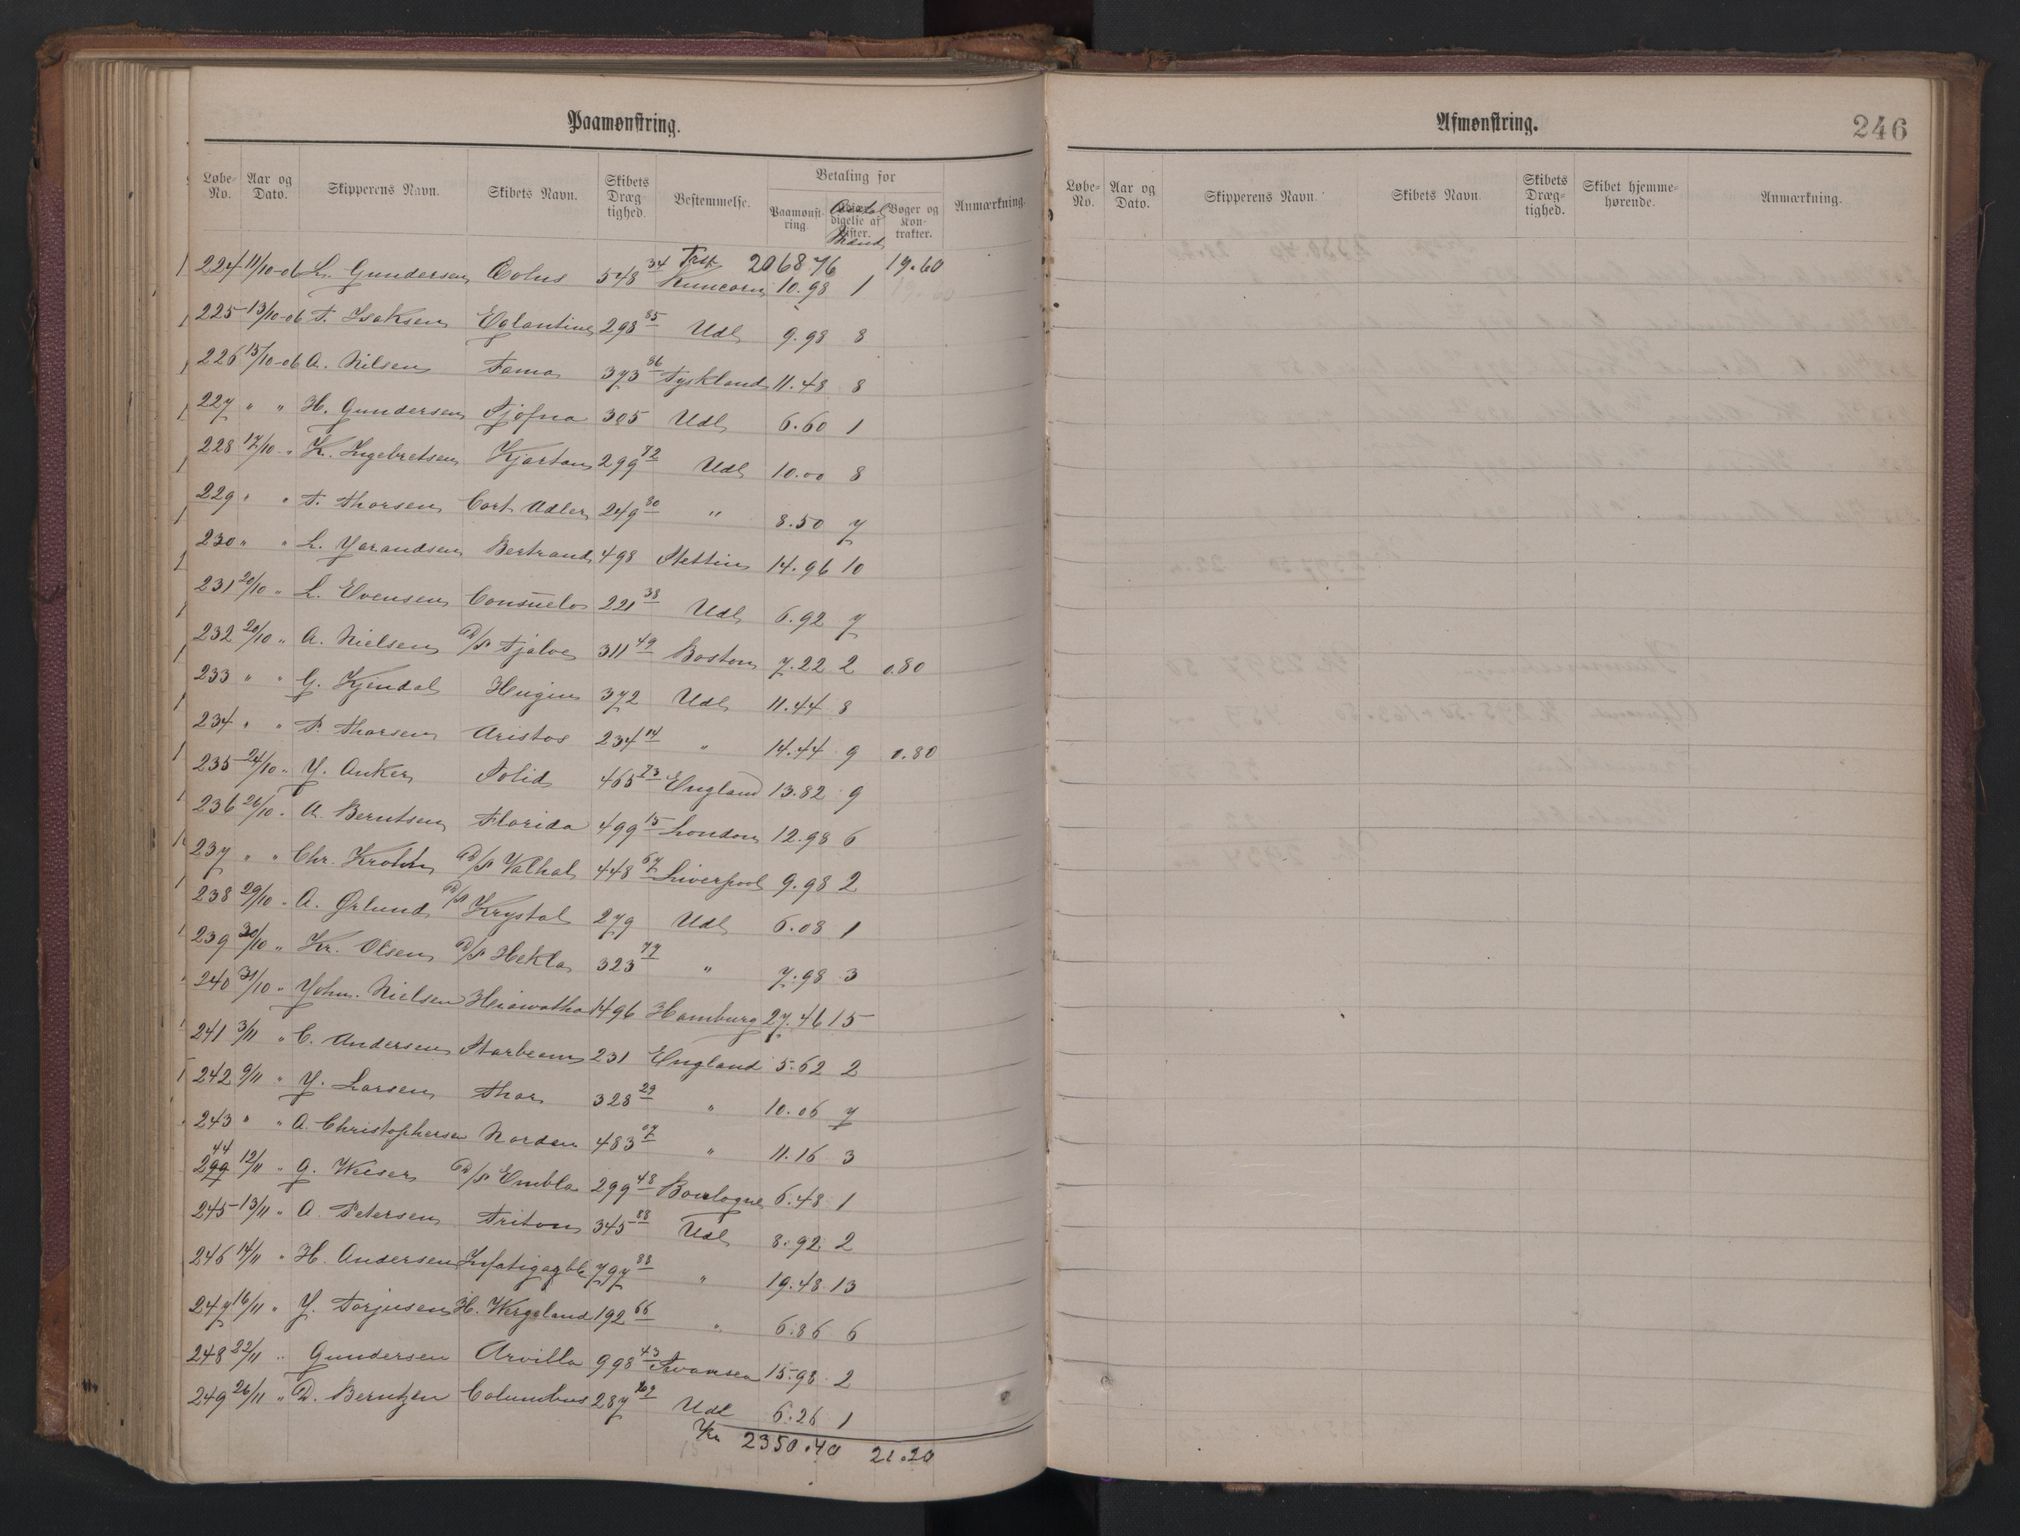 Paamønstring.
Løbe-No. Aar og Dato. Skipperens Navn. Skibets Navn. Skibets Dræg tighed. Bestemmelse. Betaling for Paamønst-ring. digelse af Lister. Antal Mand Bøger og Kon-trakter. Anmærkning.
Trsp. 2068 76 19.60
224 11/10-06 L. Gundersen Æolus 548 34 Runcorn 10.98 1
225 13/10-06 T. Isaksen Eglantine 298 85 Udl 9.98 8
226 15/10-06 A. Nilsen Fama 373 86 Tyskland 11.48 8
227 " " H. Gundersen Sjöfna 305 Udl 6.60 1
228 17/10 " K. Ingebretsen Kjartan 299 72 Udl 10.00 8
229 " " T. Thorsen Cort Adler 249 80 " 8.50 7
230 " " L. Jorandsen Bertrand 498 Stettin 14.96 10
231 20/10 " L. Evensen Consuelo 221 38 Udl 6.92 7
232 20/10 " A. Nielsen D/S Tjalve 311 49 Boston 7.22 2 0.80
233 " " G. Kjendal Hugin 372 Udl 11.44 8
234 " " P. Thorsen Aristos 234 14 " 14.44 9 0.80
235 24/10 " J. Anker Solid 465 73 England 13.82 9
236 26/10 " A. Berntsen Florida 499 15 London 12.98 6
237 " " Chr. Krohn D/S Valhal 448 67 Liverpool 9.98 2
238 29/10 " A. Ørlund D/S Krystal 279 Udl 6.08 1
239 30/10 " Kr. Olsen D/S Hekla 323 77 " 7.98 3
240 31/10 " John. Nielsen Heiawatha 1496 Hamburg 27.46 15
241 3/11 " C. Andersen Starbeam 231 England 5.62 2
242 9/11 " J. Larsen Thor 328 29 " 10.06 7
243 " " A. Christophersen Norden 483 07 " 11.16 3
244 12/11 " G. Weiser D/S Embla 299 48 Boulogne 6.48 1
245 13/11 " A. Petersen Triton 345 88 Udl 8.92 2
246 14/11 " H. Andersen Infatigagble 797 88 " 19.48 13
247 16/11 " J. Torjusen H. Wergeland 192 66 " 6.86 6
248 22/11 " Gundersen Arvilla 998 43 Swansea 15.98 2
249 26/11 " D. Berntzen Columbus 287 Udl 6.26 1
Kr 2350.40 21.20
Afmønstring.
246
Løbe-No. Aar og Dato. Skipperens Navn Skibets Navn Skibets Dræg-tighed. Skibet hjemme-hørende. Anmærkning.